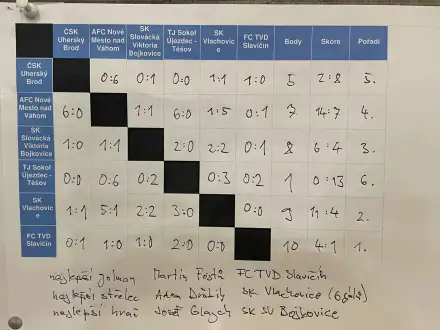 ČSK Uherský Brod AFC Nové Mesto nad Váhom SK Slovácká Viktoria Bojkovice TJ Sokol Újezdec - Těšov SK Vlachovice FC TVD Slavičín Body Skóre Pořadí
ČSK Uherský Brod 0:6 0:1 0:0 1:1 1:0 5 2:8 5.
AFC Nové Mesto nad Váhom 6:0 1:1 6:0 1:5 0:1 7 14:7 4.
SK Slovácká Viktoria Bojkovice 1:0 1:1 2:0 2:2 0:1 8 6:4 3.
TJ Sokol Újezdec - Těšov 0:0 0:6 0:2 0:3 0:2 1 0:13 6.
SK Vlachovice 1:1 5:1 2:2 3:0 0:0 9 11:4 2.
FC TVD Slavičín 0:1 1:0 1:0 2:0 0:0 10 4:1 1.
nejlepší Martin FC TVD Slavičín
nejlepší střelec SK Vlachovice
nejlepší hráč Josef SK SV Bojkovice